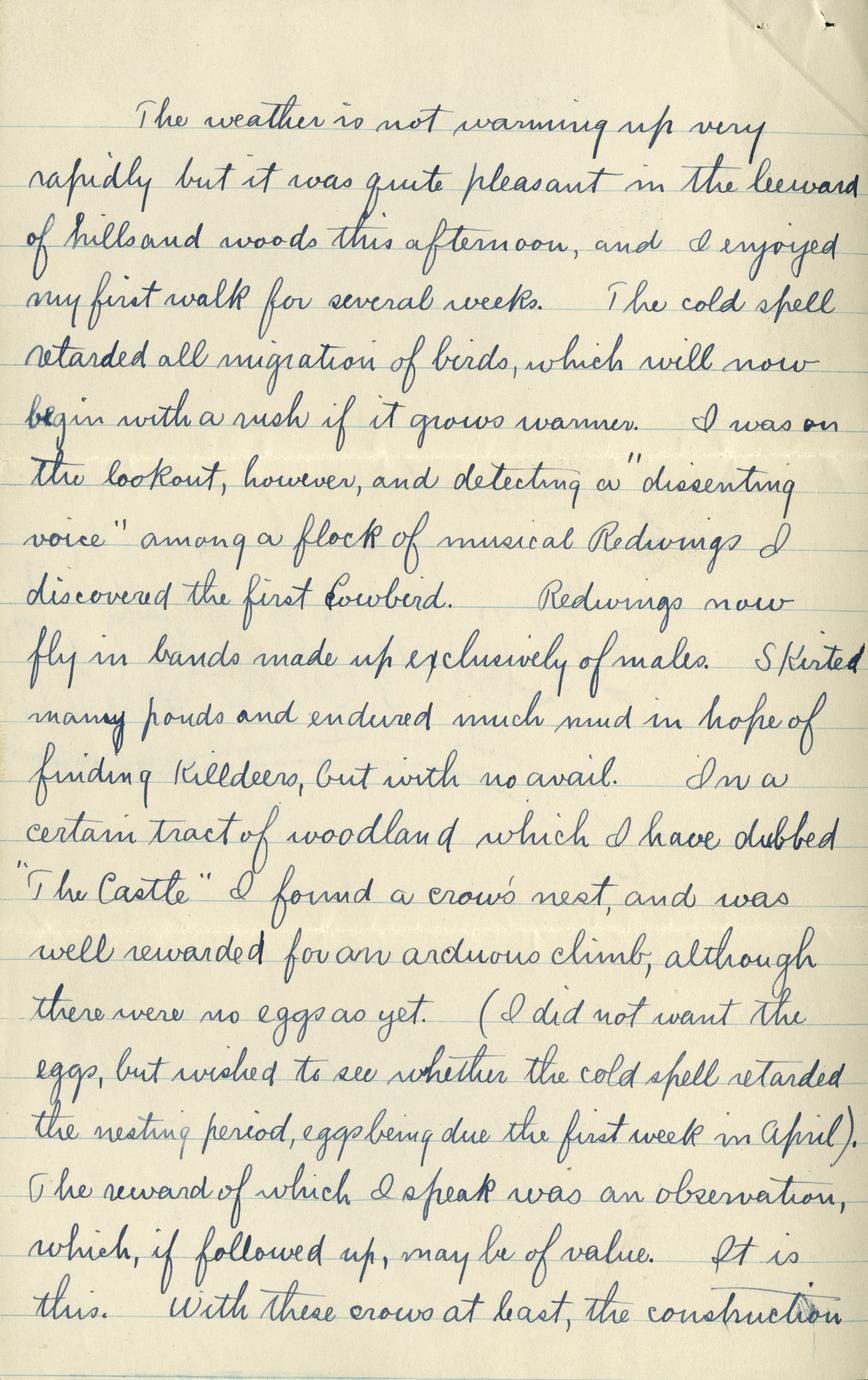 The weather is not warming up very
rapidly but it was quite pleasant in the leeward
of hills and woods this afternoon, and I enjoyed
my first walk for several weeks. The cold spell
retarded all migration of birds, which will now
begin with a rush if it grows warmer. I was on
the lookout, however, and detecting a "dissenting
voice" among a flock of musical Redwings I
discovered the first Cowbird. Redwings now
fly in bands made up exclusively of males. Skirted
many ponds and endured much mud in hope of
finding Killdeers, but with no avail. In a
certain tract of woodland which I have dubbed
"The Castle" I found a crow's nest, and was
well rewarded for an arduous climb, although
there were no eggs as yet. (I did not want the
eggs, but wished to see whether the cold spell retarded
the nesting period, eggs being due the first week in April).
The reward of which I speak was an observation,
which, if followed up, may be of value. It is
this. With these crows at least, the construction